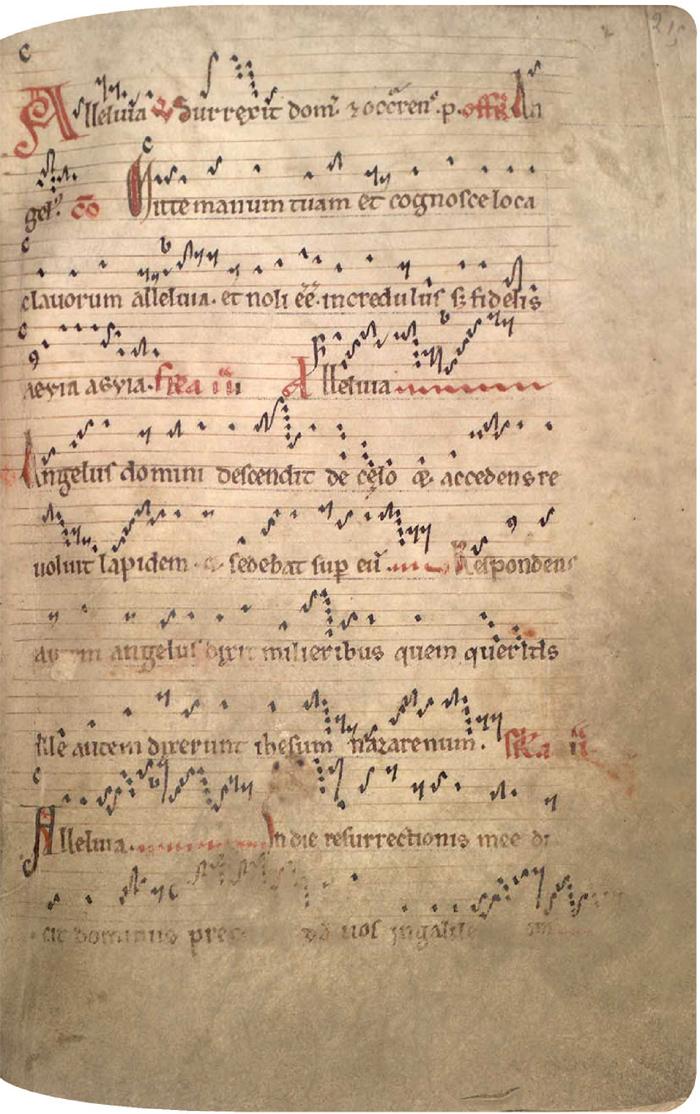 Alleluia Surrexit dom̄ ⁊ occ̄ren̄ .p. offr̄ An
gel' c̄o Mitte manum tuam et cognosce loca
clauorum alleluia. et noli eē. incredulus s; fidelis
aeuia aeuia. fr̄a iii Alleluia
Angelus domini descendit de celo et accedens re
uoluit lapidem et sedebat sup eū Respondens
autem angelus dixit mulieribus quem queritis
Ille autem dixerunt ihesum nazarenum. fr̄a ii
Alleluia. In die resurrectionis mee di
cit dominus prec uos in galile